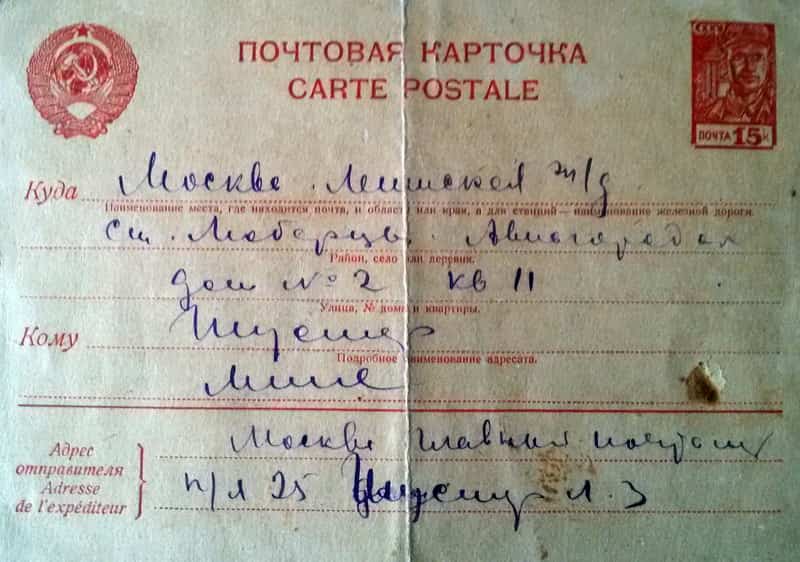 ПОЧТОВАЯ КАРТОЧКА
CARTE POSTALE
СССР
ПОЧТА 15к
Куда Москва. Ленинской ж/д
Наименование места, где находится почта, и области или края, а для станций — наименование железной дороги.
ст. Люберцы. Авиагородок
Район, село или деревня.
дом № 2 кв 11
Улица, № дома и квартиры.
Кому Шустер
Подробное наименование адресата.
Адрес отправителя
Adresse de l'expéditeur
Москва Главный почтамт
п/л 25 Л. З